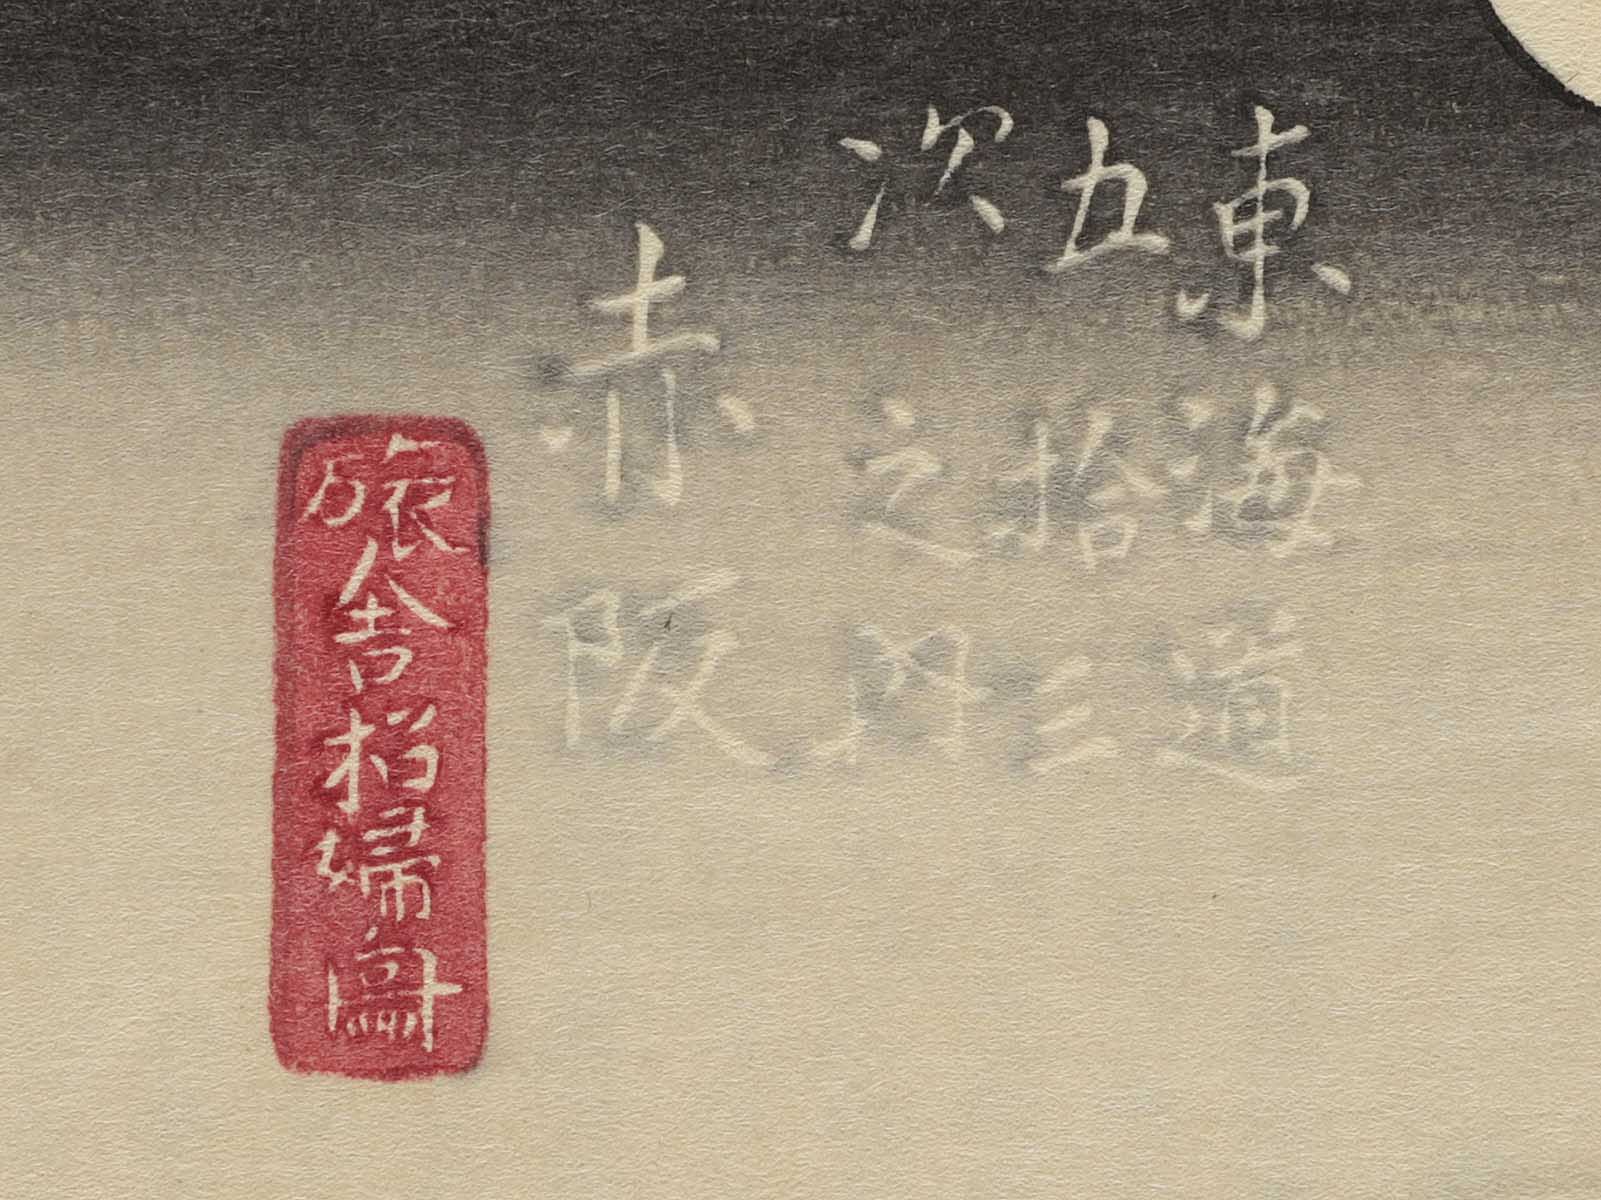 東海道
五拾三
次之内
赤阪
旅舎招婦図